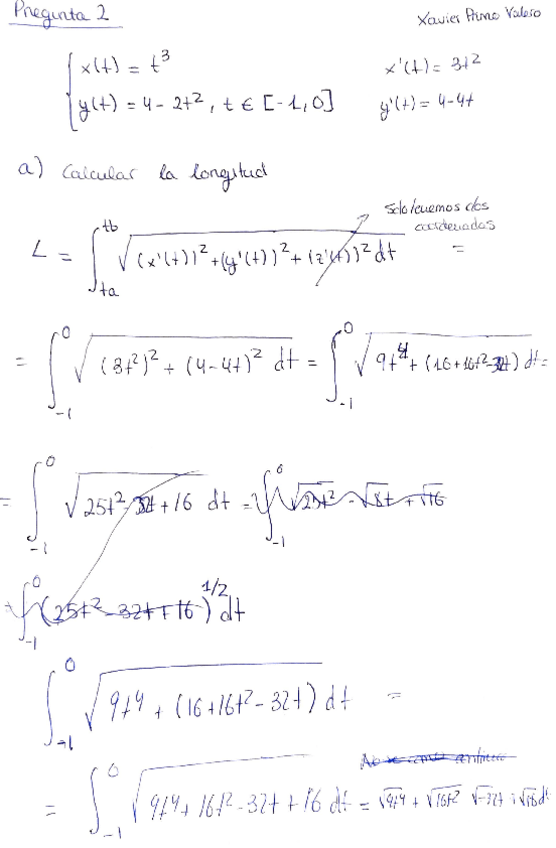 Pregunta 2
Xavier Primo Valero
x(t) = t³    x'(t) = 3t²
y(t) = 4 - 2t², t ∈ [-1, 0]    y'(t) = 4 - 4t
a) Calcular la longitud
Solo tenemos dos coordenadas
L = ∫_{ta}^{tb} √((x'(t))² + (y'(t))² + (z'(t))²) dt =
= ∫_{-1}^{0} √((3t²)² + (4-4t)²) dt = ∫_{-1}^{0} √(9t⁴ + (16+16t²-32t)) dt =
= ∫_{-1}^{0} √(25t² - 32t + 16) dt = ∫_{-1}^{0} √25t² - √8t + √16
= ∫_{-1}^{0} (25t² - 32t + 16)^{1/2} dt
∫_{-1}^{0} √(9t⁴ + (16+16t²-32t)) dt =
= ∫_{-1}^{0} √(9t⁴ + 16t² - 32t + 16) dt = √9t⁴ + √16t² √-32t + √16 dt